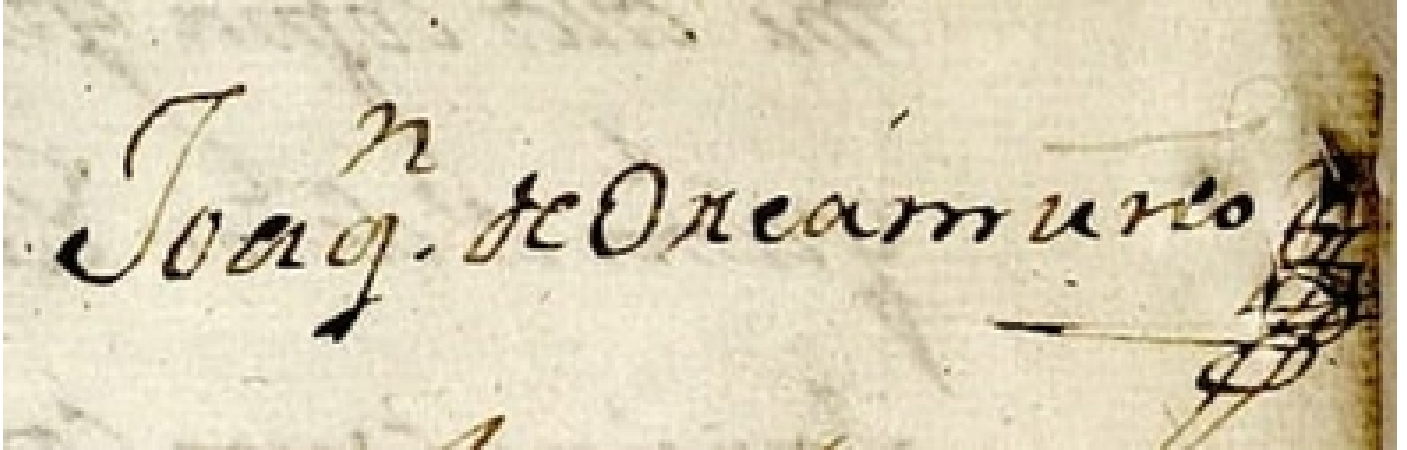 Joaqⁿ. de Oreámuno